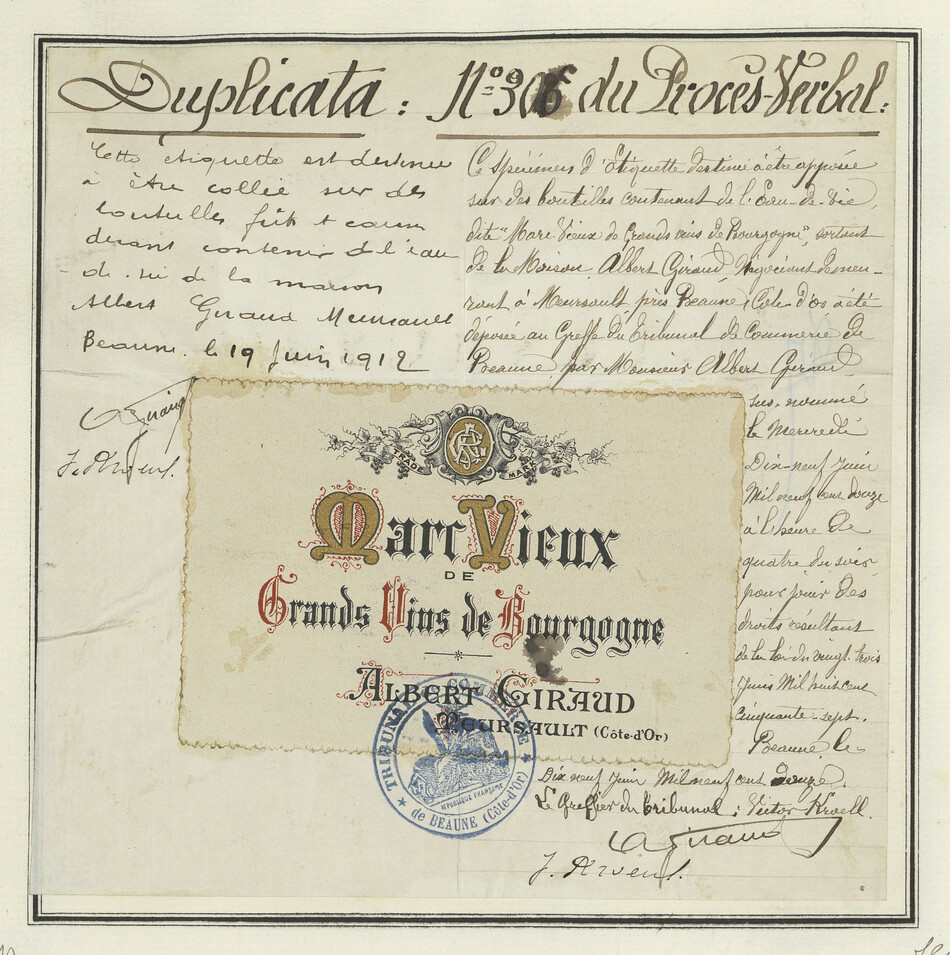 Duplicata : Nº 306 du Procès-Verbal :
Cette étiquette est destinée
à être collée sur des
bouteilles fûts et caisses
devant contenir de l'eau
de vie de la maison
Albert Giraud Meursault
Beaune. le 19 Juin 1912
A Giraud
Ce spécimens d'Etiquette destiné à être apposée
sur des bouteilles contenant de l'Eau-de-Vie,
dite "Marc-Vieux de Grands vins de Bourgogne", sortant
de la Maison Albert Giraud Négociant demeu-
rant à Meursault près Beaune (Côte-d'Or a été
déposée au Greffe du Tribunal de Commerce de
Beaune, par Monsieur Albert Giraud,
sus-nommé
le Mercredi
Dix-neuf Juin
Mil neuf cent douze
à l'heure de
quatre du soir
pour jouir des
droits résultant
de la loi du vingt-trois
Juin Mil huit cent
cinquante-sept.
Beaune le
Dix neuf Juin Mil neuf cent douze.
Le Greffier du Tribunal : Victor Kroell.
A Giraud
TRADE MARK
Marc Vieux
DE
Grands Vins de Bourgogne
ALBERT GIRAUD
MEURSAULT (Côte-d'Or)
TRIBUNAL DE COMMERCE
RÉPUBLIQUE FRANÇAISE
de BEAUNE (Côte-d'Or)